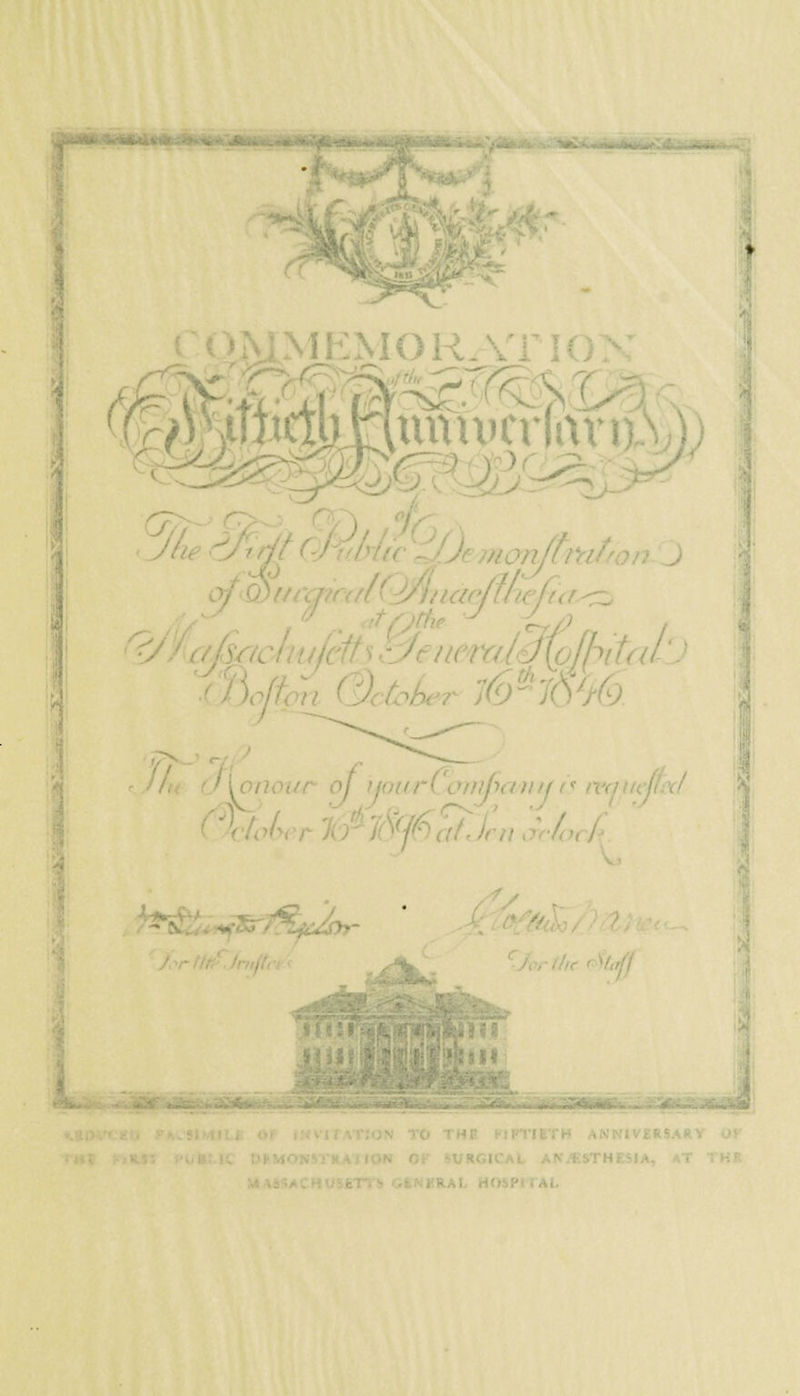 COMMEMORATION
of the
Fiftieth Anniverſary
The Firſt Public Demonſtration
of Surgical Anaeſtheſia
at the
Maſsachuſetts General Hoſpital
Boſton October 16th 1846
The Honour of your Company is requeſted
October 16th 1896 at Ten o'clock
For the Truſtees
For the Staff
REDUCED FACSIMILE OF INVITATION TO THE FIFTIETH ANNIVERSARY OF
THE FIRST PUBLIC DEMONSTRATION OF SURGICAL ANÆSTHESIA, AT THE
MASSACHUSETTS GENERAL HOSPITAL